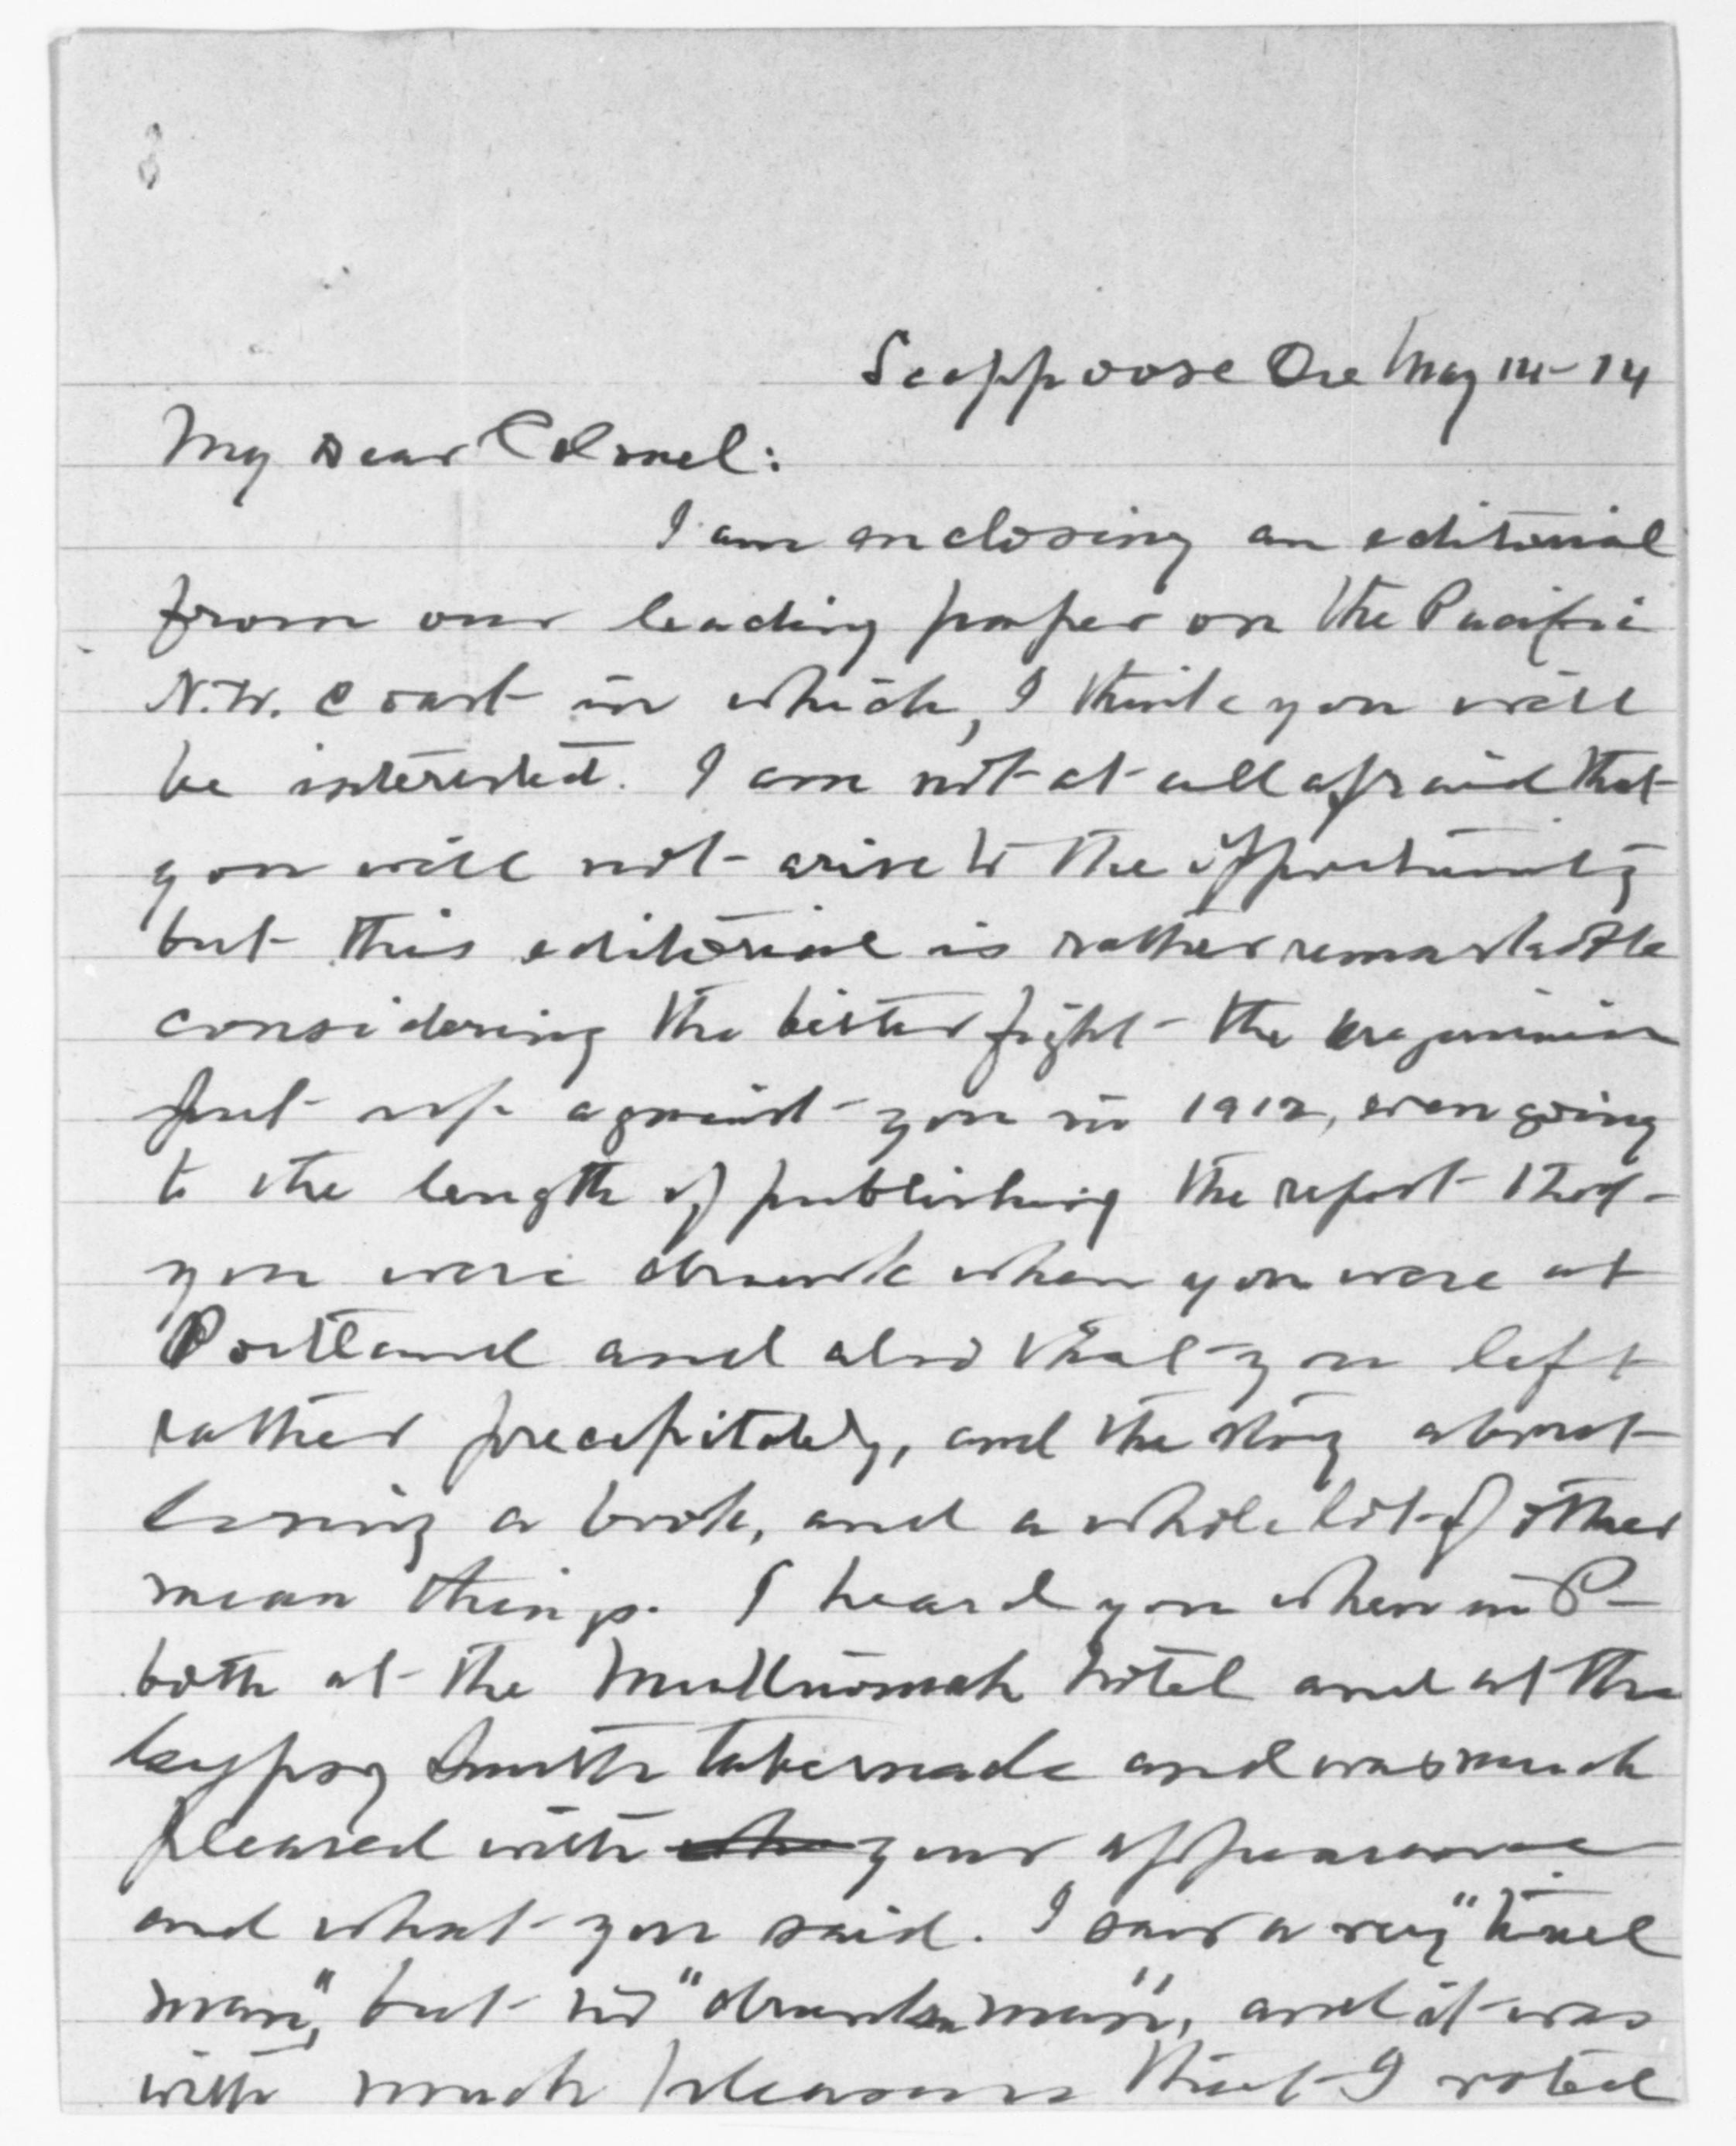 Scappoose Ore May 14-14
My Dear Colonel:
I am enclosing an editorial
from our leading paper on the Pacific
N.W. Coast in which, I think you will
be interested. I am not at all afraid that
you will not arise to the opportunity
but this editorial is rather remarkable
considering the bitter fight the Oregonian
put up against you in 1912, even going
to the length of publishing the report that
you were drunk when you were at
Portland and also that you left
rather precipitately, and the story about
losing a book, and a whole lot of other
mean things. I heard you when in P-
both at the Multnomah Hotel and at the
Gypsy Smith tabernacle and was much
pleased with your appearance
and what you said. I saw a very "tired
man," but no "drunken man", and it was
with much pleasure that I voted